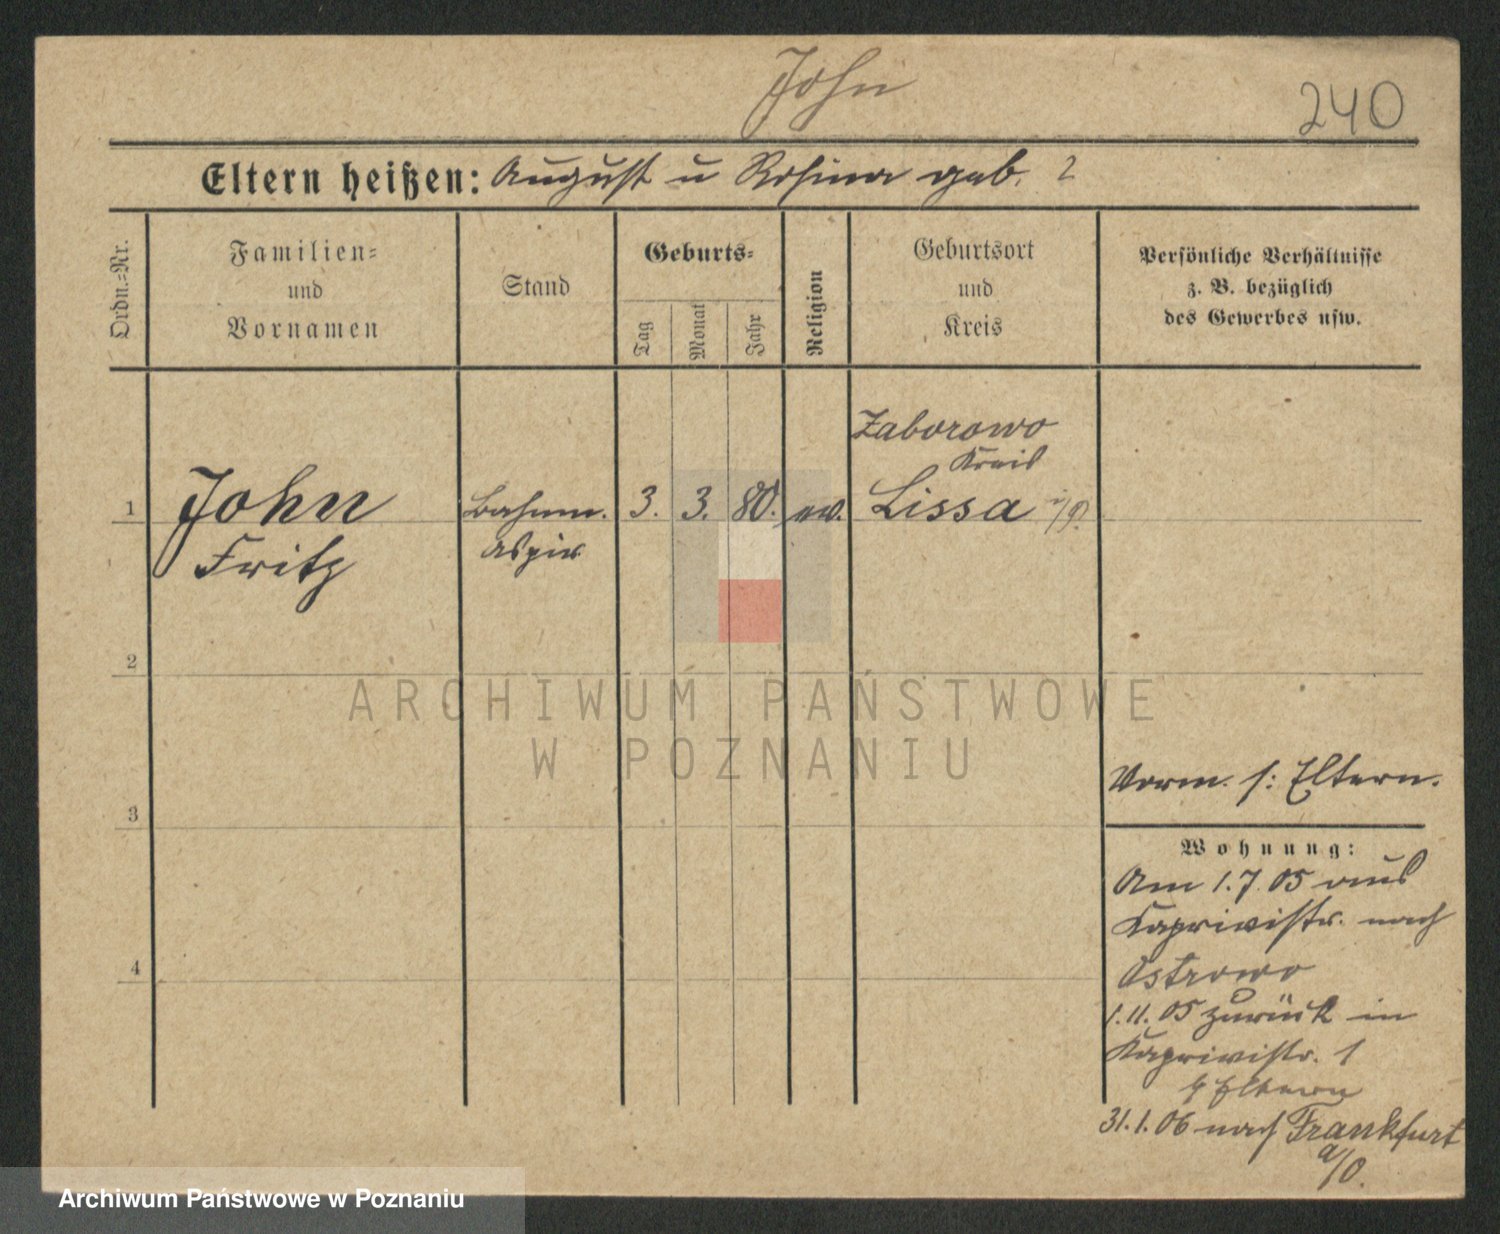 John
240
Eltern heißen: August u Rosina geb. ?
Ordn.=Nr.
Familien=
und
Vornamen
Stand
Geburts=
Tag
Monat
Jahr
Religion
Geburtsort
und
Kreis
Persönliche Verhältnisse
z. B. bezüglich
des Gewerbes usw.
Zaborowo
Kreis
1 John Bahnm. 3. 3. 80. ev. Lissa i/P.
Fritz aspir.
2
ARCHIWUM PAŃSTWOWE
W POZNANIU
Vorm. s: Eltern.
3
Wohnung:
Am 1.7.05 aus
Kaprivistr. nach
4
Ostrowo
1.11.05 zurück in
Kaprivistr. 1
b Eltern
31.1.06 nach Frankfurt
a/O.
Archiwum Państwowe w Poznaniu